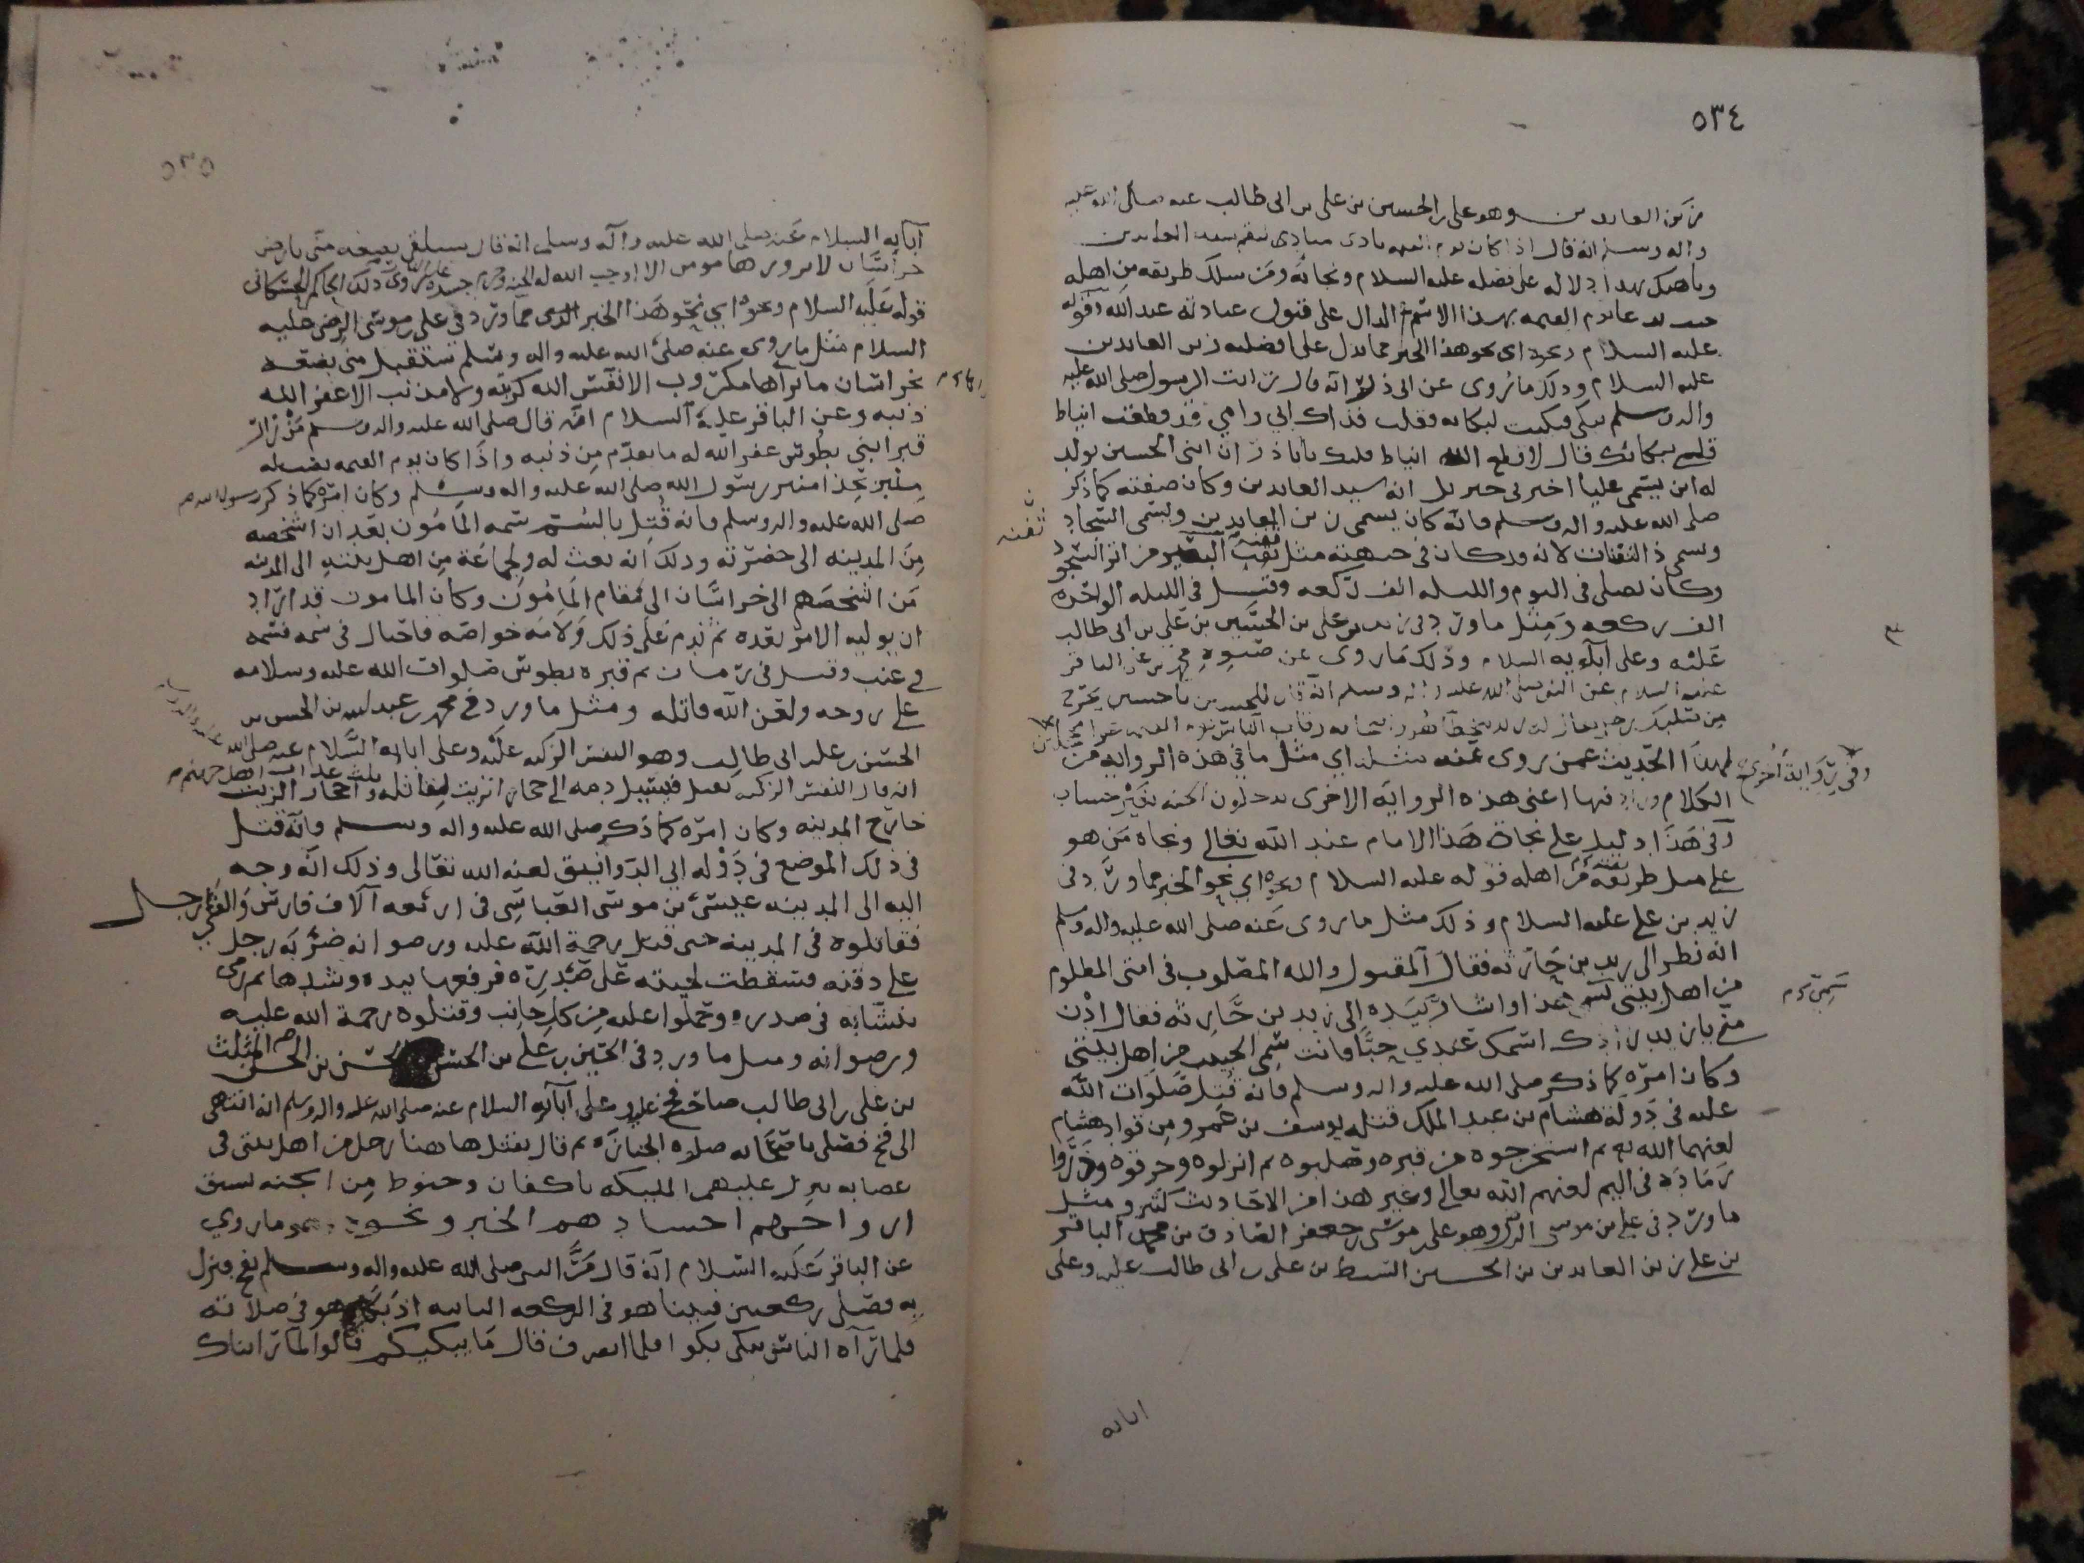 ٥٣٤
زين العابدين وهو علي بن الحسين بن علي بن ابي طالب عنه صلى الله عليه
واله وسلم انه قال اذا كان يوم القيمه نادى منادى ليقم سيد العابدين
وناهيك بهذا دلاله على فضله عليه السلام ونجاته ومن سلك طريقه من اهله
عليه السلام ونحوه اى نحو هذا الخبر مما يدل على افضليه زين العابدين
عليه السلام وذلك ما روى عن ابى ذر انه قال رايت الرسول صلى الله عليه
واله وسلم يبكى فبكيت لبكائه وقلت فداك ابي وامي قد قطعت انياط
قلبي ببكائك قال لا قطع الله انياط قلبك يا با ذر ان ابنى الحسين يولد
له ابن يسمى عليا اخبرنى جبريل انه سيد العابدين وكان صفته كما ذكر
صلى الله عليه واله وسلم فانه كان يسمى زين العابدين ويسمى السجاد
ويسمى ذا الثفنات لانه كان في جبهته مثل ثفنة البعير من اثر السجود
وكان يصلى فى اليوم والليله الف ركعه وقيل فى الليله الواحده
الف ركعه ومثل ما ورد فى زيد بن على بن الحسين بن على بن ابى طالب
عليه وعلى آبائه السلام وذلك ما روى عن صنوه محمد بن على الباقر
عليه السلام عن النبى صلى الله عليه واله وسلم انه قال للحسين يا حسين يخرج
من صلبك رجل يقال له زيد يتخطا هو واصحابه رقاب الناس يوم القيمه غرا محجلين
وفي رواية اخرى لهذا الحديث عمن روى عنه مثله اي مثل ما في هذه الروايه من
الكلام وزاد فيها اعنى هذه الروايه الاخرى يدخلون الجنه بغير حساب
وفى هذا دليل على نجاة هذا الامام عند الله تعالى ونجاه من هو
على مثل طريقته من اهله قوله عليه السلام ونحوه اي نحو الخبر مما ورد فى
زيد بن على عليه السلام وذلك مثل ما روى عنه صلى الله عليه واله وسلم
انه نظر الى زيد بن حارثه فقال المقتول والله المصلوب فى امتى المظلوم
من اهل بيتى سمي هذا واشار بيده الى زيد بن حارثه فقال ادن
منى يا زيد زادك اسمك عندي حبا فانت سمي الحبيب من اهل بيتى
وكان امره كما ذكر صلى الله عليه واله وسلم فانه قتل صلوات الله
عليه فى دولة هشام بن عبد الملك قتله يوسف بن عمرو من قواد هشام
لعنهما الله ثم استخرجوه من قبره وصلبوه ثم انزلوه وحرقوه وذروا
رماده فى اليم لعنهم الله تعالى وغير هذا من الاحاديث كثير ومثل
ما ورد فى على بن موسى الرضى وهو على بن موسى بن جعفر الصادق بن محمد الباقر
بن على زين العابدين بن الحسين السبط بن على بن ابى طالب عليه وعلى
ابائه
ثفنه
٥٣٥
آبائه السلام عنه صلى الله عليه وآله وسلم انه قال ستلقى بضعه منى بارض
خراسان لا يزورها مومن الا اوجب الله له الجنه وحرم جسده على النار روى ذلك الحاكم الجشكانى
قوله عليه السلام ونحوه اي نحو هذا الخبر الذى مما ورد فى على بن موسى الرضى عليه
السلام مثل ما روى عنه صلى الله عليه واله وسلم ستقتل منى بضعه
بخراسان ما زارها مكروب الا نفس الله كربته ولا مذنب الا غفر الله
ذنبه وعن الباقر عليه السلام انه قال صلى الله عليه واله وسلم من زار
قبر ابني بطوس غفر الله له ما تقدم من ذنبه واذا كان يوم القيمه نصب له
منبر بحذا منبر رسول الله صلى الله عليه واله وسلم وكان امره كما ذكر رسول الله
صلى الله عليه واله وسلم فانه قتل بالسم سمه المامون بعد ان اشخصه
من المدينه الى حضرته وذلك انه بعث له ولجماعة من اهل بيته الى المدينه
من اشخصهم الى خراسان الى مقام المامون وكان المامون قد اراد
ان يوليه الامر بعده ثم ندم على ذلك ولامه خواصه فاحتال فى سمه فسمه
في عنب وقيل فى رمان ثم قبره بطوس صلوات الله عليه وسلامه
على روحه ولعن الله قاتله ومثل ما ورد في محمد بن عبد الله بن الحسن بن
الحسن بن على بن ابى طالب وهو النفس الزكيه عليه وعلى ابائه السلام عنه صلى الله
انه قال النفس الزكيه يقتل فيسيل دمه الى حجار الزيت لقاتله ثلث عذاب اهل جهنم واحجار الزيت
خارج المدينه وكان امره كما ذكر صلى الله عليه واله وسلم فانه قتل
فى ذلك الموضع فى دوله ابي الدوانيق لعنه الله تعالى وذلك انه وجه
اليه الى المدينه عيسى بن موسى العباسي فى اربعه آلاف فارس والفي رجل
فقاتلوه فى المدينه حتى قتل رحمة الله عليه ورضوانه ضربه رجل
على دقنه فسقطت لحيته على صدره فرفعها بيده وشدها ثم رمى
بنشابه فى صدره وحملوا عليه من كل جانب وقتلوه رحمة الله عليه
ورضوانه ومثل ما ورد فى الحسين بن على بن الحسن المثلث بن الحسن
بن على بن ابى طالب صاحب فخ عليه وعلى آبائه السلام عنه صلى الله عليه واله وسلم انه انتهى
الى فخ فصلى باصحابه صلوه الجنازه ثم قال يقتل هاهنا رجل من اهل بيتى فى
عصابه ينزل عليهم المليكه باكفان وحنوط من الجنه تسبق
ارواحهم اجسادهم الخبر ونحوه ما روي
عن الباقر عليه السلام انه قال مر النبى صلى الله عليه واله وسلم بفخ فنزل
به فصلى ركعتين فبينا هو فى الركعه الثانيه اذ بكى وهو فى صلاته
فلما رآه الناس يبكى بكوا فلما انصرف قال ما يبكيكم قالوا لما رايناك